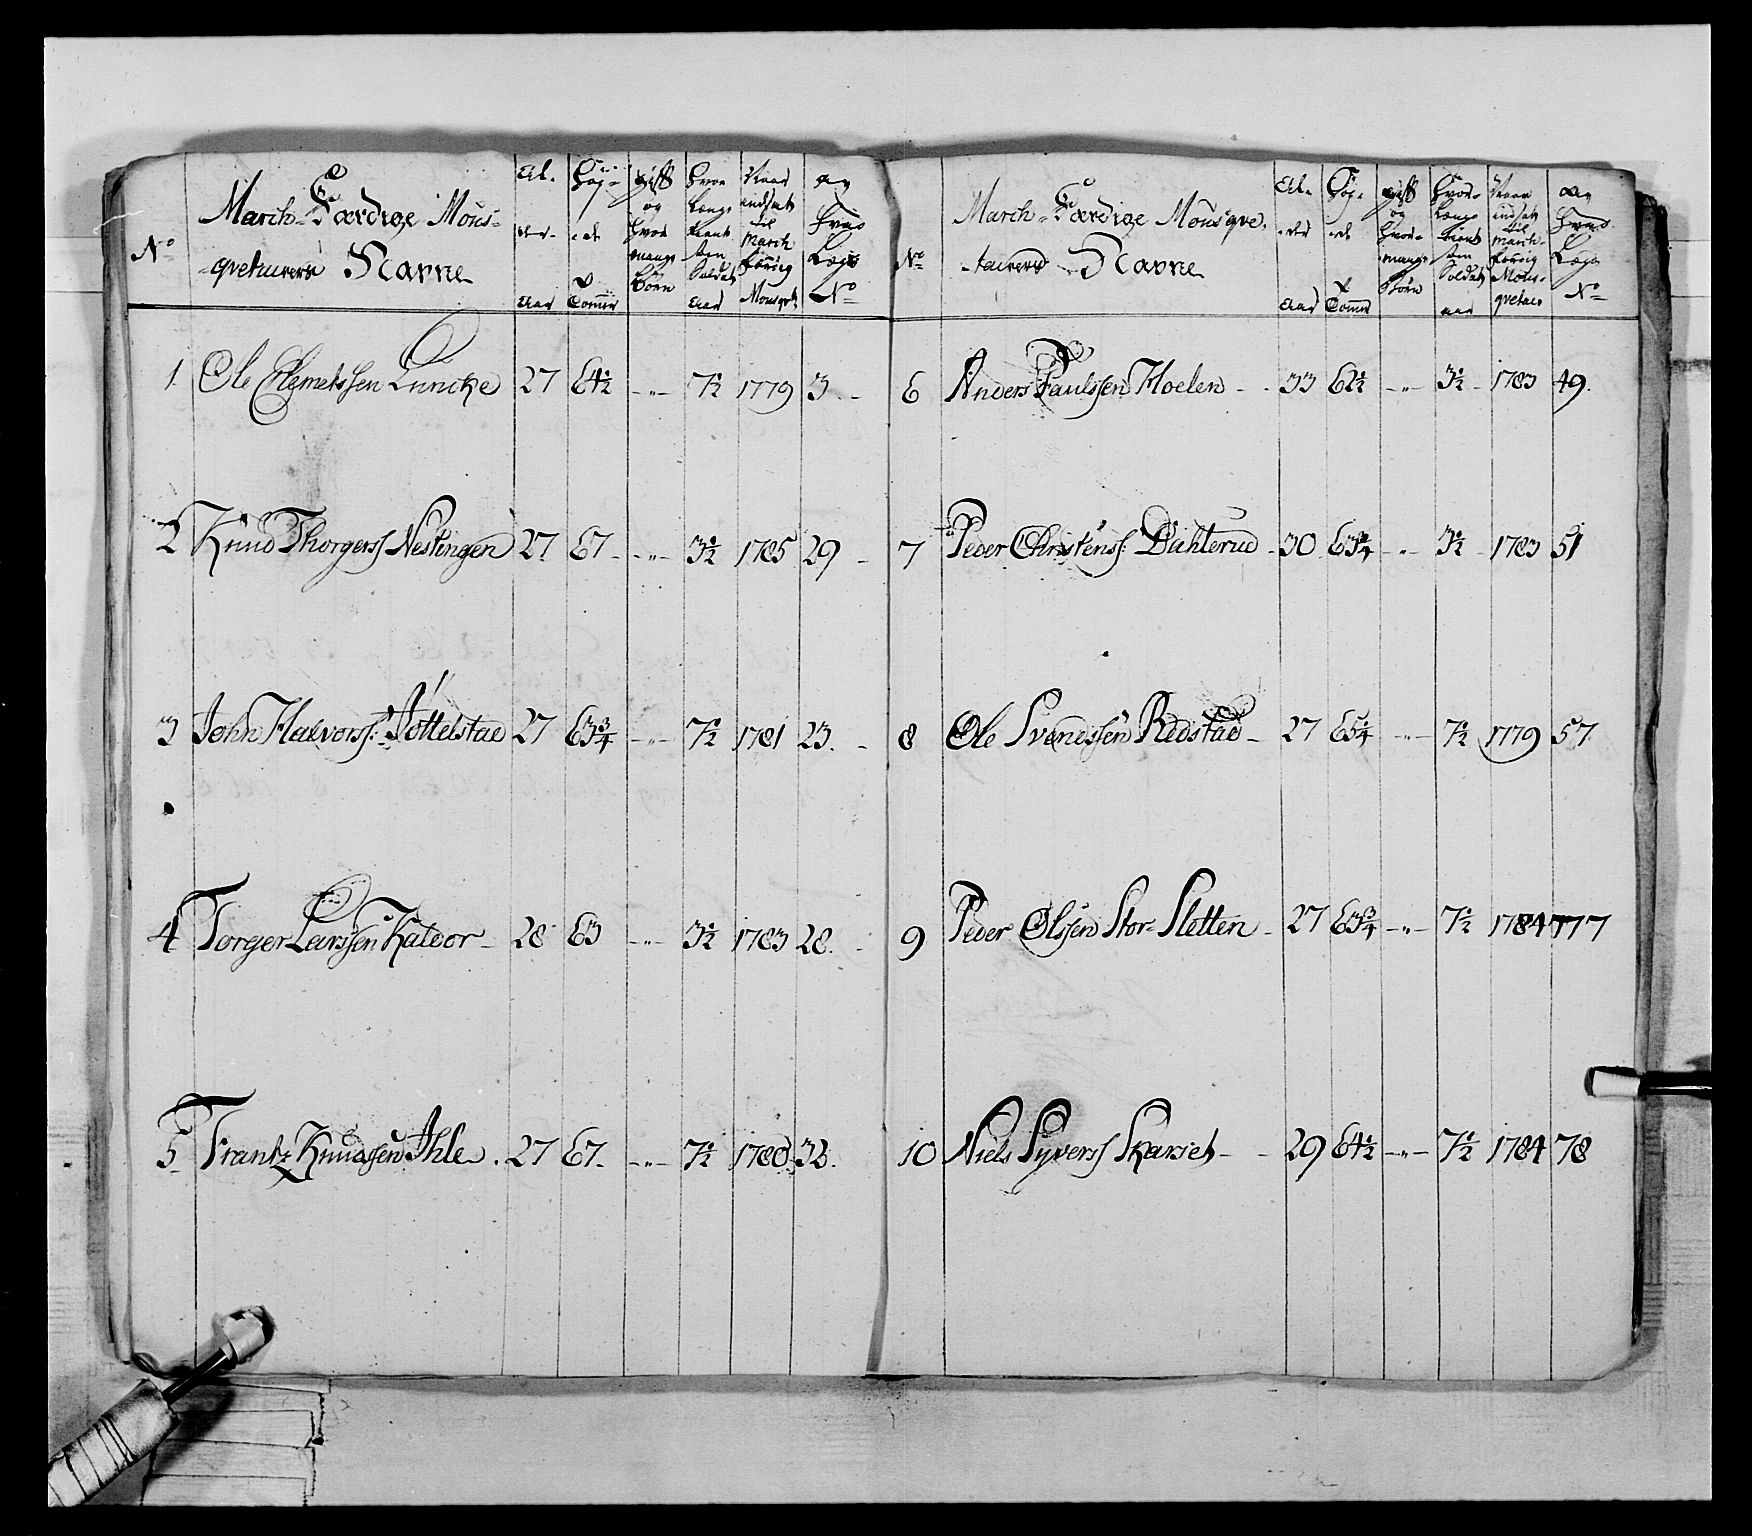 No
March-Færdige Mous-
-qvetairers Navne
Al-
der-
Aar
Høj-
-de
Tommer
gift
og
hvor
mange
Børn
Hvor
længe
tient
som
Soldat
Aar
Naar
indsat
til
March
færdig
Mousqvt
Lægs
No
1. Ole Clemetssen Luncke 27 64½ -"- 7½ 1779 3. -
2 Knud Thorgerss Neslingen 27 67- -"- 3½ 1785 29 -
3 John Halvorss: Jøttelstad 27 63¾ -"- 7½ 1781 23. -
4 Torger Larssen Kaldor- 28 63 -"- 3½ 1783 28. -
5- Frantz Knudssen Ihle. 27 67- -"- 7½ 1780 33.
No
March-Færdige Mousqve,
-tairers Navne
Al-
-der
Aar
Høj-
-de
Tomer
gift
og
hvor-
mange
Børn
Hvor-
længe
tient
som
Soldat
aar
Naar
indsat
til
March-
færdig
Mous-
qvetair
Lægs
No
6 Anders Paulssen Moelen - - 33 62½ -"- 3½ - 1783 49.
7 Peder Christenss: Dahlerud - 30 63¾ -"- 3½ - 1783 51
8 Ole Svendssen Rødstad - 27 65¼ -"- 7½ 1779 57
9 Peder Olssen Stor-Sletten - 27 63¾ -"- 7½ 1784 77
10 Niels Syverss Skarset - - 29 64½ -"- 7½ 1784 78